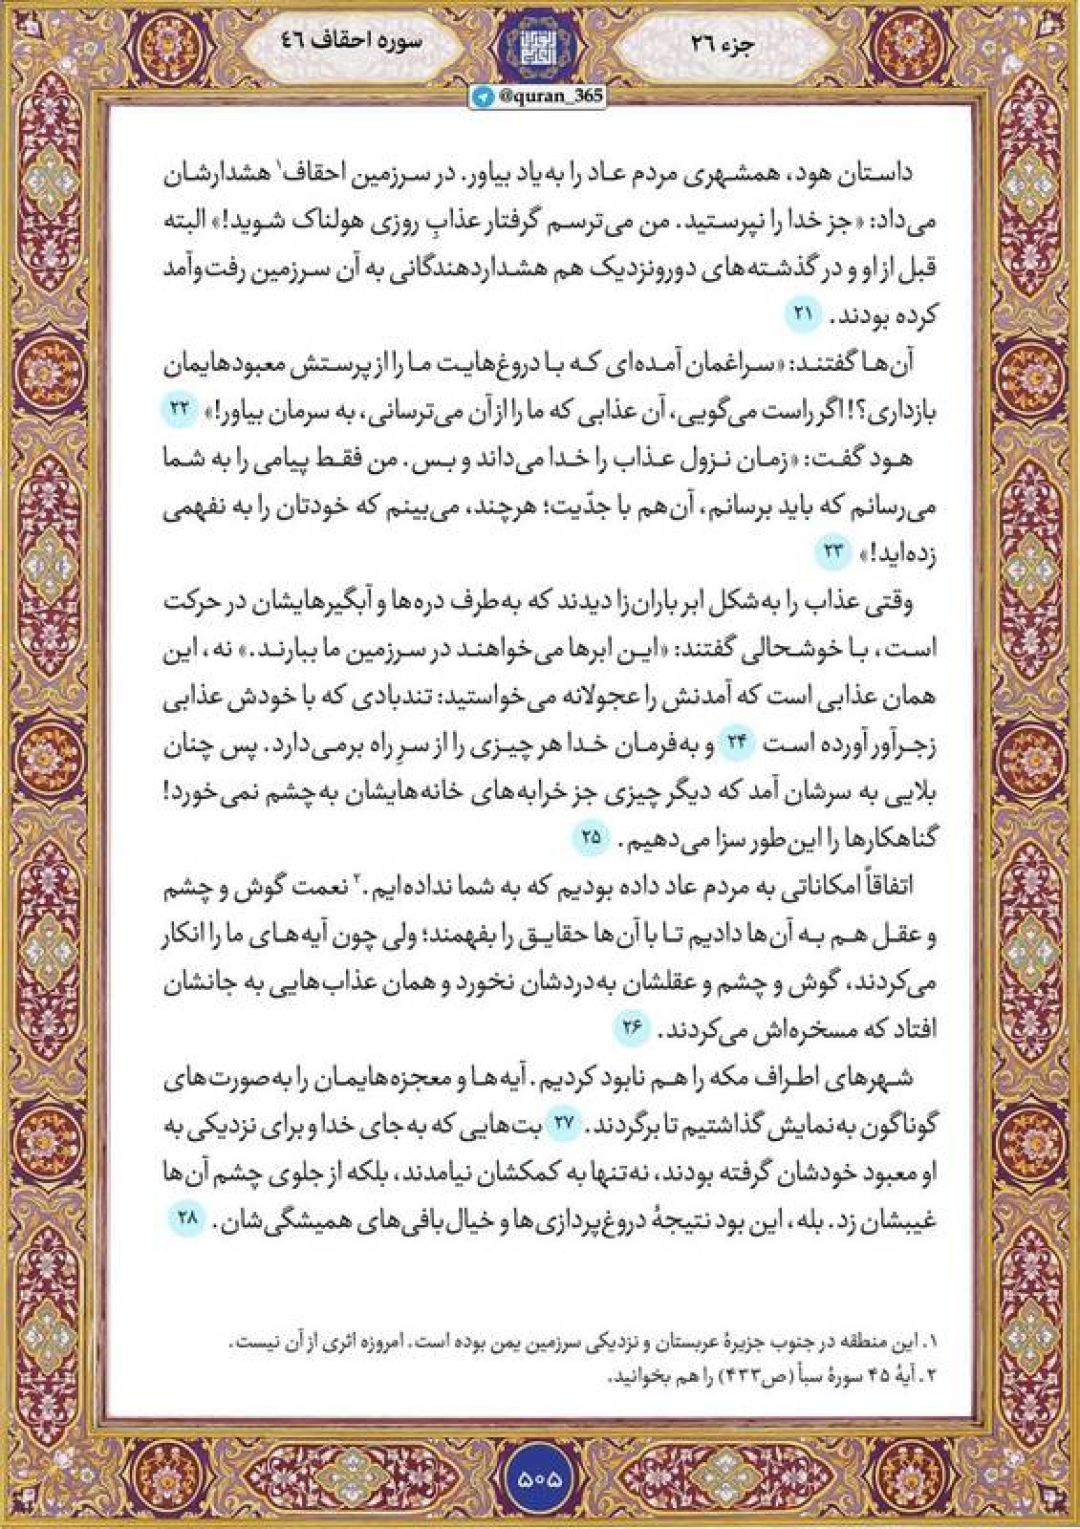 جزء ۲۶
سوره احقاف ٤٦
@quran_365
داستان هود، همشهری مردم عاد را به‌یاد بیاور. در سرزمین احقاف۱ هشدارشان
می‌داد: «جز خدا را نپرستید. من می‌ترسم گرفتار عذابِ روزی هولناک شوید!» البته
قبل از او و در گذشته‌های دورونزدیک هم هشداردهندگانی به آن سرزمین رفت‌وآمد
کرده بودند. ۲۱
آن‌ها گفتند: «سراغمان آمده‌ای که با دروغ‌هایت ما را از پرستش معبودهایمان
بازداری؟! اگر راست می‌گویی، آن عذابی که ما را از آن می‌ترسانی، به سرمان بیاور!» ۲۲
هود گفت: «زمان نزول عذاب را خدا می‌داند و بس. من فقط پیامی را به شما
می‌رسانم که باید برسانم، آن‌هم با جدّیت؛ هرچند، می‌بینم که خودتان را به نفهمی
زده‌اید!» ۲۳
وقتی عذاب را به‌شکل ابر باران‌زا دیدند که به‌طرف دره‌ها و آبگیرهایشان در حرکت
است، با خوشحالی گفتند: «این ابرها می‌خواهند در سرزمین ما ببارند.» نه، این
همان عذابی است که آمدنش را عجولانه می‌خواستید: تندبادی که با خودش عذابی
زجرآور آورده است ۲۴ و به‌فرمان خدا هر چیزی را از سرِ راه برمی‌دارد. پس چنان
بلایی به سرشان آمد که دیگر چیزی جز خرابه‌های خانه‌هایشان به‌چشم نمی‌خورد!
گناهکارها را این‌طور سزا می‌دهیم. ۲۵
اتفاقاً امکاناتی به مردم عاد داده بودیم که به شما نداده‌ایم.۲ نعمت گوش و چشم
و عقل هم به آن‌ها دادیم تا با آن‌ها حقایق را بفهمند؛ ولی چون آیه‌های ما را انکار
می‌کردند، گوش و چشم و عقلشان به‌دردشان نخورد و همان عذاب‌هایی به جانشان
افتاد که مسخره‌اش می‌کردند. ۲۶
شهرهای اطراف مکه را هم نابود کردیم. آیه‌ها و معجزه‌هایمان را به‌صورت‌های
گوناگون به‌نمایش گذاشتیم تا برگردند. ۲۷ بت‌هایی که به‌جای خدا و برای نزدیکی به
او معبود خودشان گرفته بودند، نه‌تنها به کمکشان نیامدند، بلکه از جلوی چشم آن‌ها
غیبشان زد. بله، این بود نتیجهٔ دروغ‌پردازی‌ها و خیال‌بافی‌های همیشگی‌شان. ۲۸
۱. این منطقه در جنوب جزیرهٔ عربستان و نزدیکی سرزمین یمن بوده است. امروزه اثری از آن نیست.
۲. آیهٔ ۴۵ سورهٔ سبأ (ص۴۳۳) را هم بخوانید.
۵۰۵